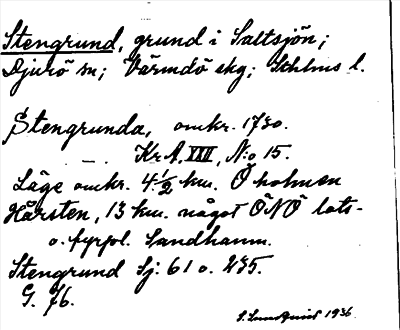 Stengrund, grund i Saltsjön;
Djurö sn; Värmdö skg; Sthlms l.
Stengrunda, omkr. 1730.
Kr. A. VIII, N:o 15.
Läge omkr. 4 1/2 km. Ö holmen
Hårsten, 13 km. något ÖNÖ lots-
o. fyrpl. Sandhamn.
Stengrund Sj: 61 o. 235.
G. 76.
S. Lundquist 1936